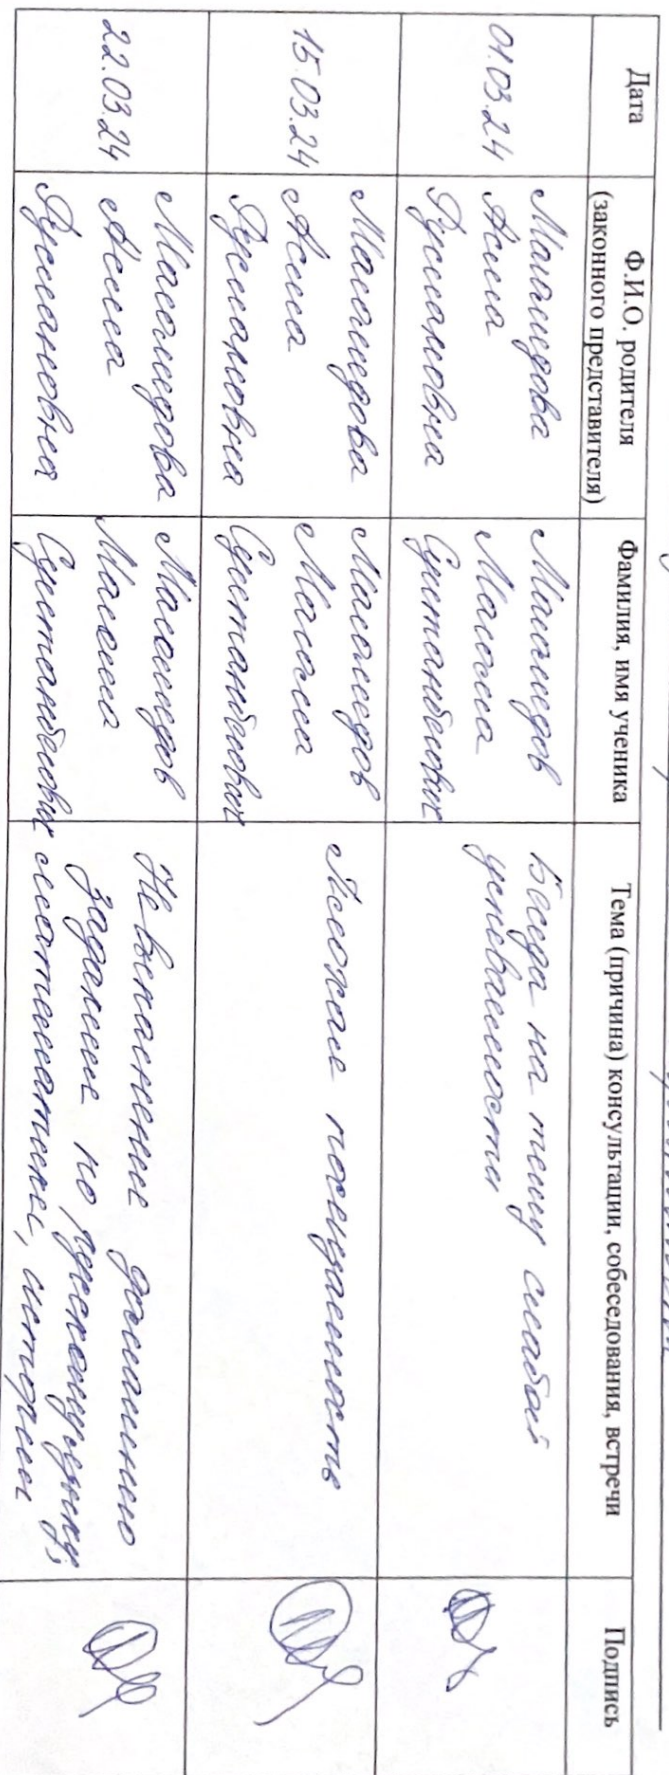 Дата
Ф.И.О. родителя
(законного представителя)
Фамилия, имя ученика
Тема (причина) консультации, собеседования, встречи
Подпись
01.03.24
Магамедова
Асила
Магамедов
Магома
Султанбекович
Беседа на тему слабой
успеваемости
15.03.24
Магамедова
Асила
Магамедов
Магома
Султанбекович
Плохая посещаемость
22.03.24
Магамедова
Асила
Магамедов
Магома
Султанбекович
Не выполнение домашнего
задания по русскому языку,
математике, истории